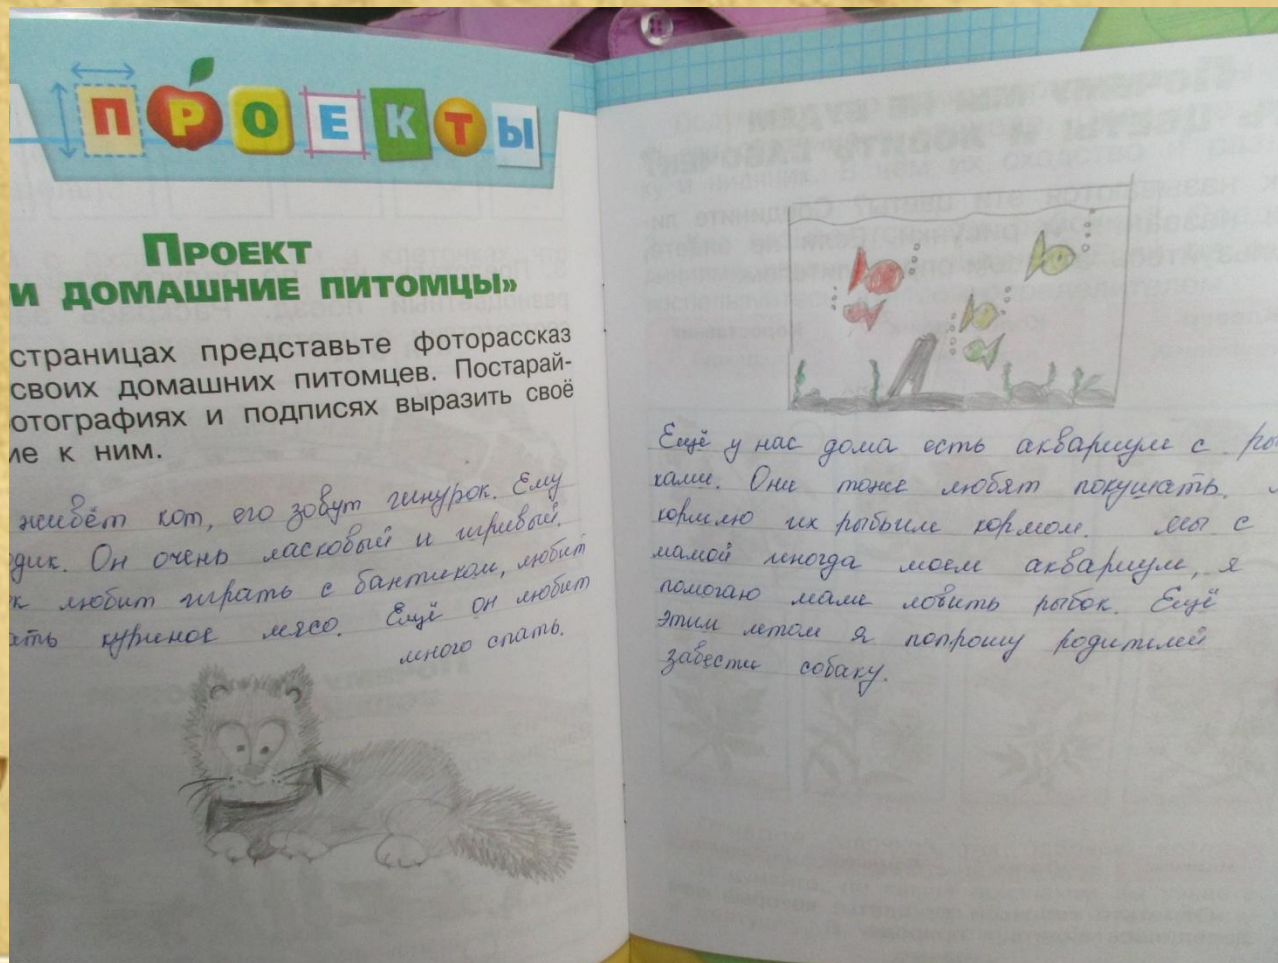 ПРОЕКТЫ
ПРОЕКТ
И ДОМАШНИЕ ПИТОМЦЫ»
страницах представьте фоторассказ
своих домашних питомцев. Постарай-
отографиях и подписях выразить своё
ие к ним.
живёт кот, его зовут гинурок. Ему
одик. Он очень ласковый и игривый.
к любит играть с бантиком, любит
ать куриное мясо. Ещё он любит
много спать.
Ещё у нас дома есть аквариум с ры
ками. Они тоже любят покушать.
кормлю их рыбьим кормом. Мы с
мамой иногда моем аквариум, я
помогаю маме ловить рыбок. Ещё
этим летом я попрошу родителей
завести собаку.